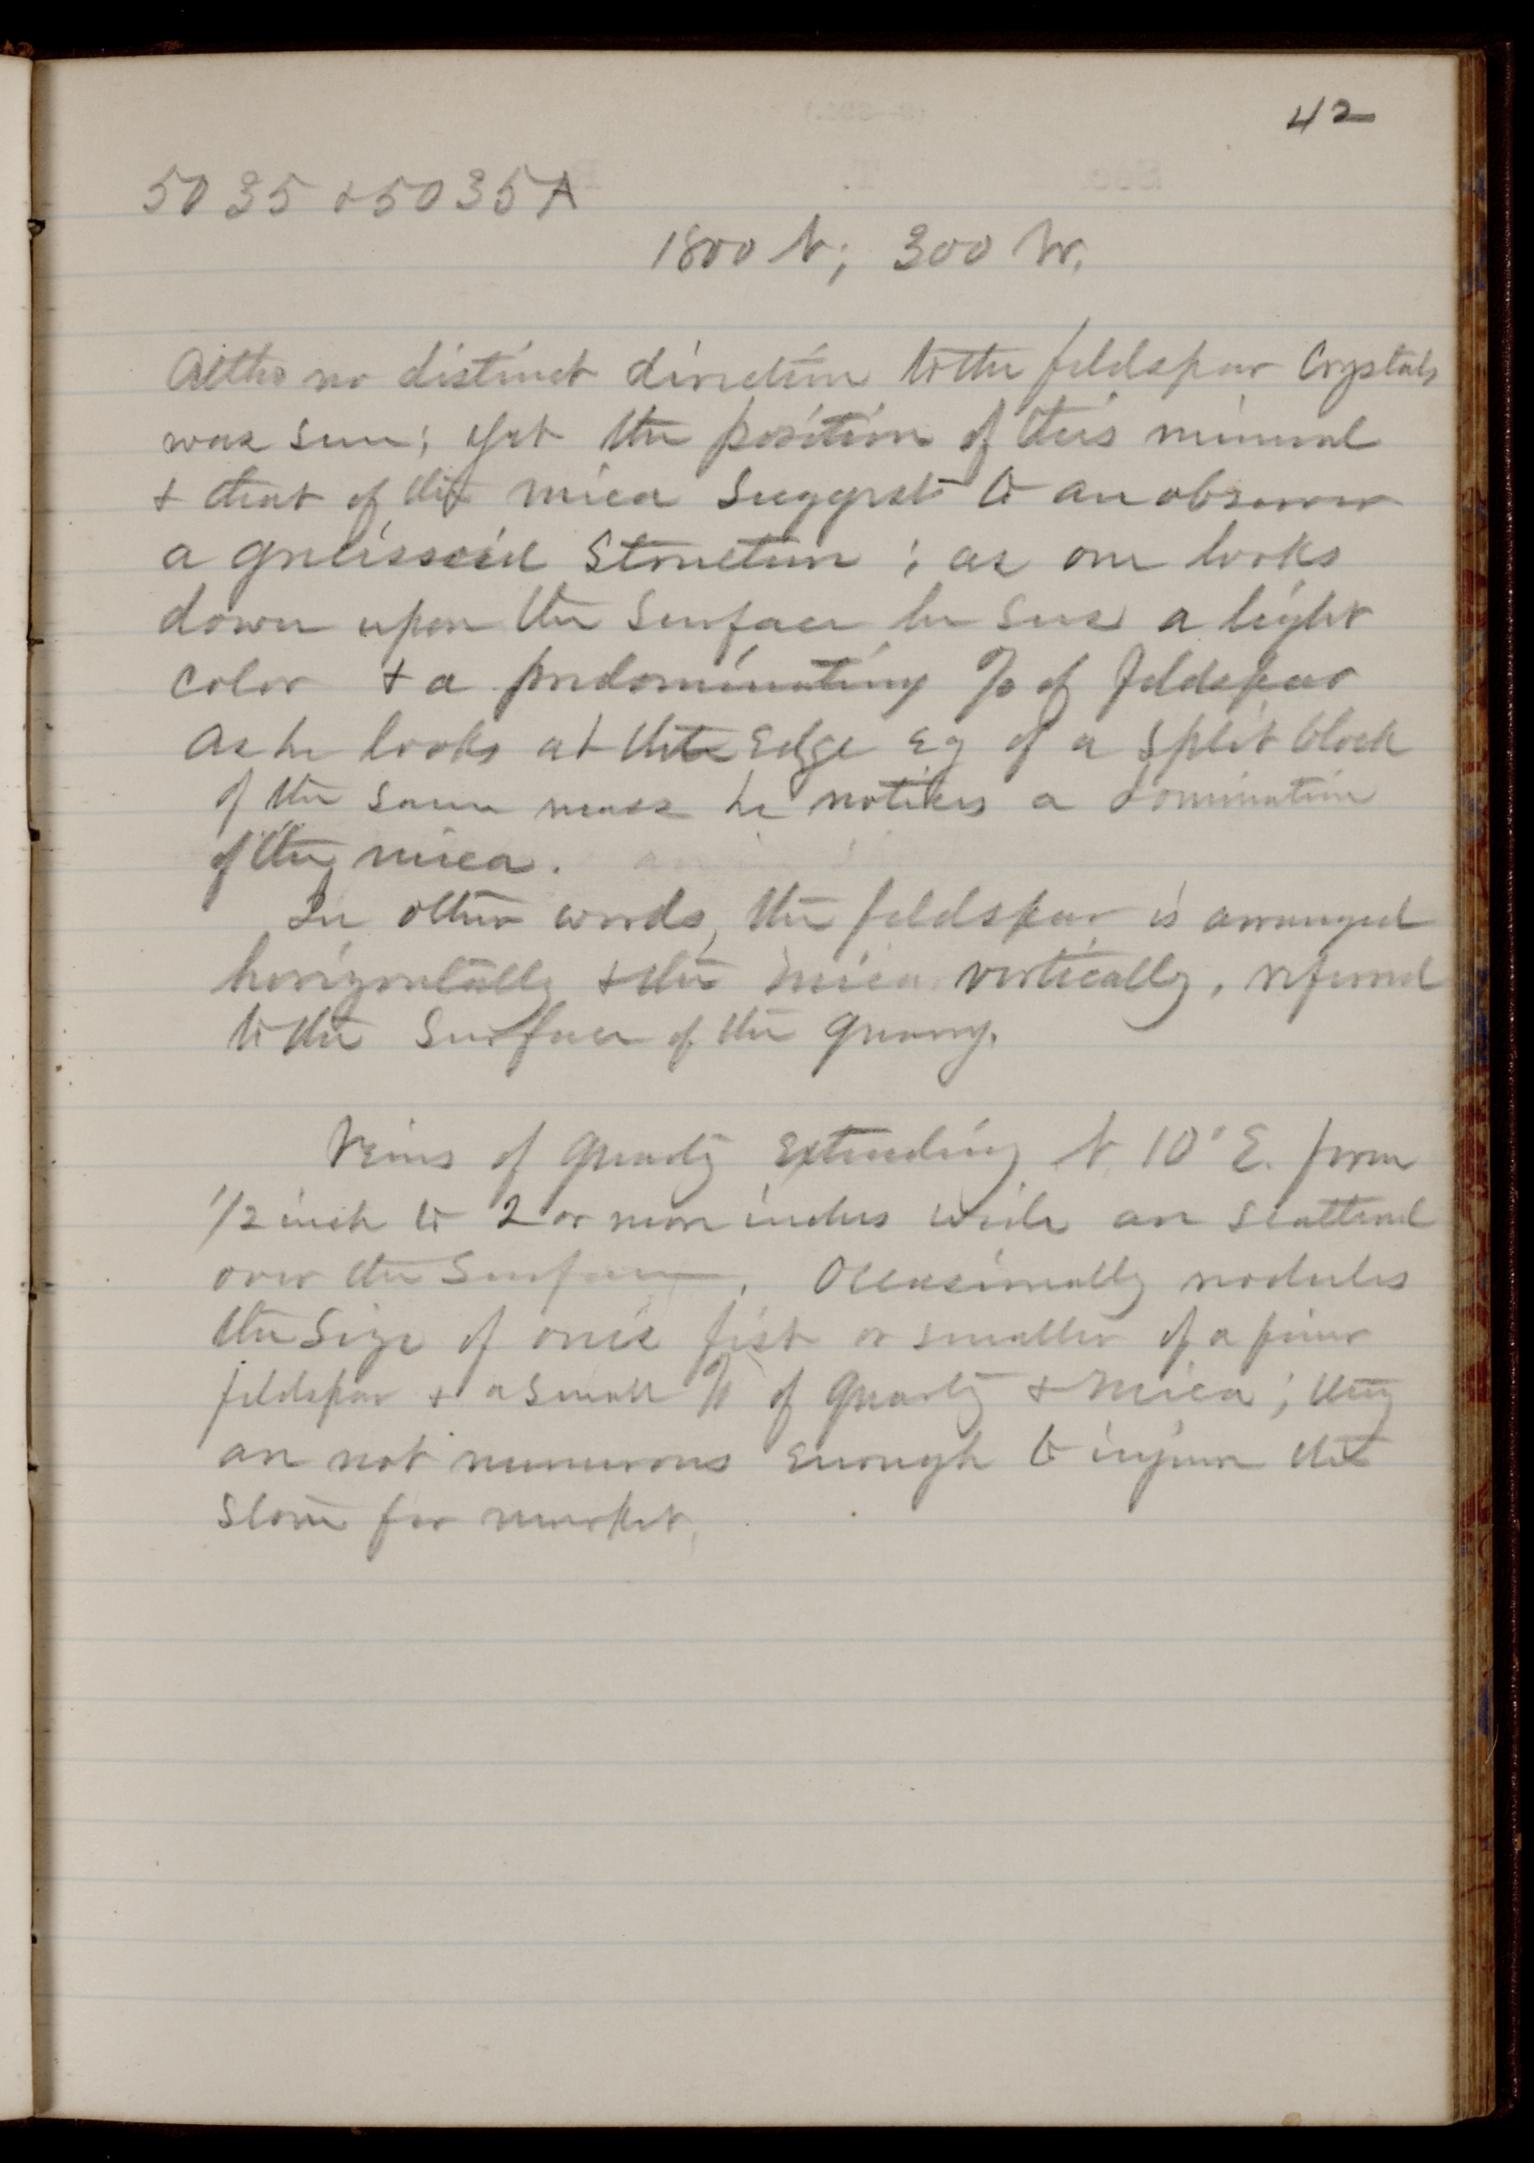 42
5035 & 5035A
1800 N; 300 W.
Altho no distinct direction to the feldspar Crystals
was seen; yet the position of this mineral
& that of the mica suggest to an observer
a gneissoid structure; as one looks
down upon the surface he sees a light
color & a predominating % of feldspar
as he looks at the edge eg of a split block
of the same mass he notices a domination
of the mica.
In other words, the feldspar is arranged
horizontally & the mica vertically, referred
to the surface of the quarry.
Veins of quartz extending N 10° E. from
1/2 inch to 2 or more inches wide are scattered
over the surface. Occasionally nodules
the size of one's fist or smaller of a finer
feldspar & a small % of quartz & mica; they
are not numerous enough to injure the
stone for market.